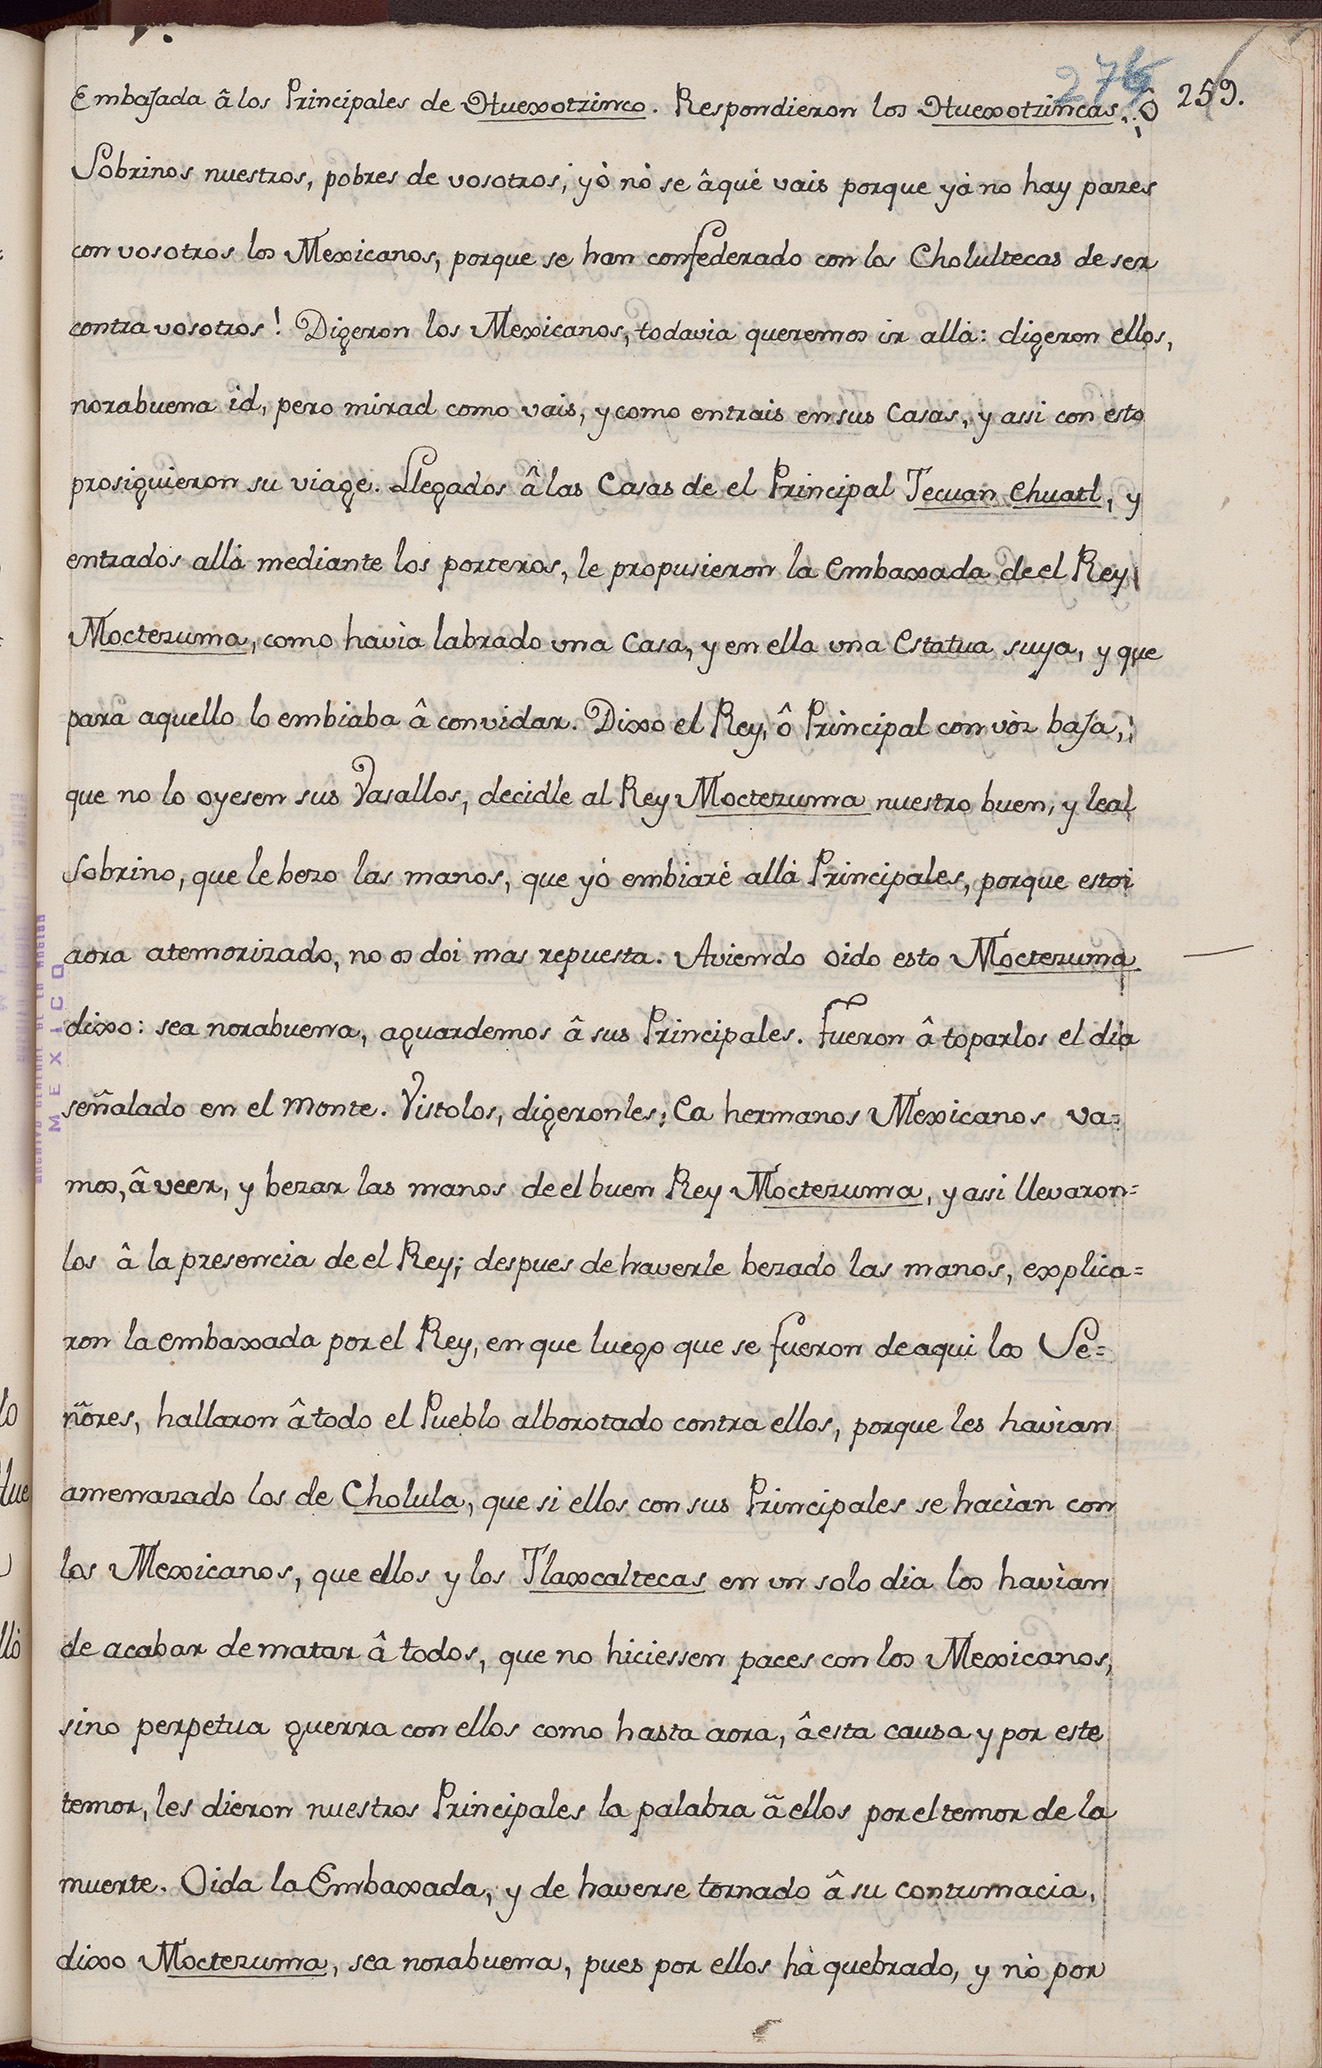 275 259.
Embajada â los Principales de Huexotzinco. Respondieron los Huexotzincas. ¡Ô
Sobrinos nuestros, pobres de vosotros, yò nò se âquè vais porque yà no hay pazes
con vosotros los Mexicanos, porque se han confederado con los Cholultecas de ser
contra vosotros! Digeron los Mexicanos, todavia queremos ir allà: digeron ellos,
norabuena id, pero mirad como vais, y como entrais en sus Casas, y assi con esto
prosiguieron su viage. Llegados â las Casas de el Principal Tecuan Ehuatl, y
entrados allà mediante los porteros, le propusieron la embaxada de el Rey
Moctezuma, como havia labrado una Casa, y en ella una Estatua suya, y que
para aquello lo embiaba â convidar. Dixo el Rey, ô Principal con vòz baja,
que no lo oyesen sus Vasallos, decidle al Rey Moctezuma nuestro buen, y leal
sobrino, que le bezo las manos, que yò embiarè allà Principales, porque estoi
aora atemorizado, no os doi mas repuesta. Aviendo oido esto Moctezuma
dixo: sea norabuena, aguardemos â sus Principales. Fueron â toparlos el dia
señalado en el monte. Vistolos, digeronles: Ea hermanos Mexicanos va=
mos, â veer, y bezar las manos de el buen Rey Moctezuma, y assi llevaron=
los â la presencia de el Rey; despues de haverle bezado las manos, explica=
ron la embaxada por el Rey, en que luego que se fueron de aqui los Se=
ñores, hallaron â todo el Pueblo alborotado contra ellos, porque les havian
amenazado los de Cholula, que si ellos con sus Principales se hacian con
los Mexicanos, que ellos y los Tlaxcaltecas en un solo dia los havian
de acabar de matar â todos, que no hiciessen paces con los Mexicanos,
sino perpetua guerra con ellos como hasta aora, â esta causa y por este
temor, les dieron nuestros Principales la palabra â ellos por el temor de la
muerte. Oida la Embaxada, y de haverse tornado â su contumacia,
dixo Moctezuma, sea norabuena, pues por ellos hà quebrado, y nò por
ARCHIVO GENERAL DE LA NACION
MEXICO